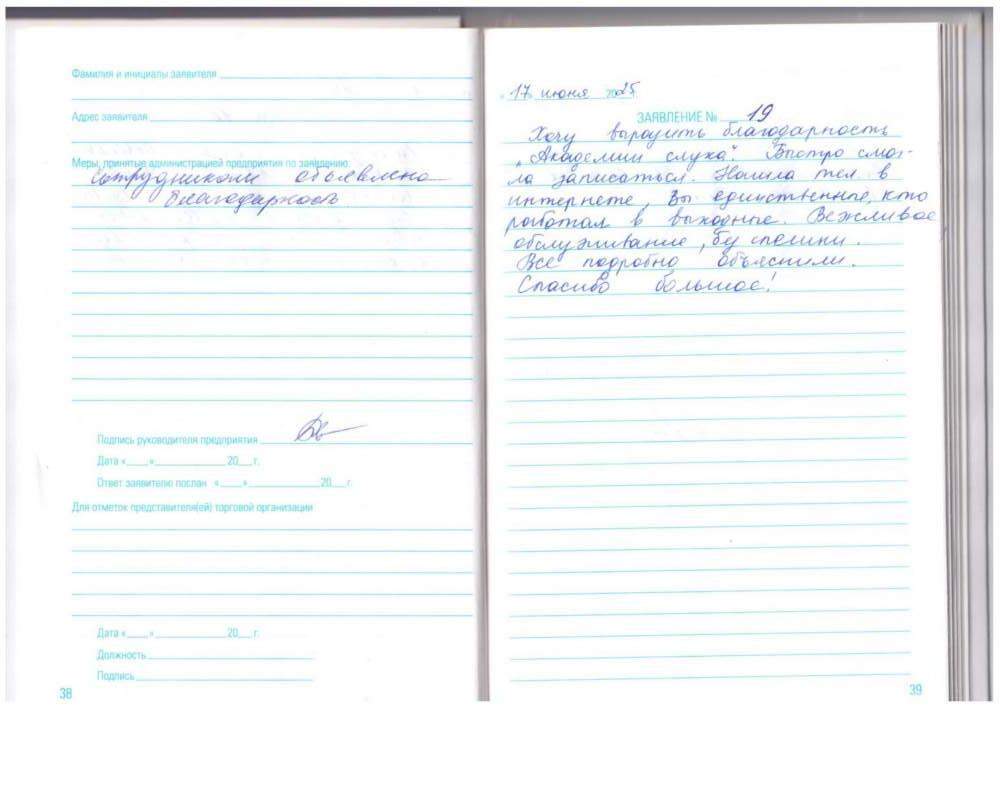 Фамилия и инициалы заявителя
Адрес заявителя
Меры, принятые администрацией предприятия по заявлению:
сотрудникам объявлена
благодарность
Подпись руководителя предприятия
Дата «___»____________20___г.
Ответ заявителю послан «___»____________20___г.
Для отметок представителя(ей) торговой организации
Дата «___»____________20___г.
Должность
Подпись
38
17 июня 2025
ЗАЯВЛЕНИЕ № 19
Хочу выразить благодарность
„Академии слуха“. Быстро смог-
ла записаться. Нашла тел в
интернете, Вы единственные, кто
работал в выходные. Вежливое
обслуживание, бу спешки.
Все подробно объяснили.
Спасибо большое!
39